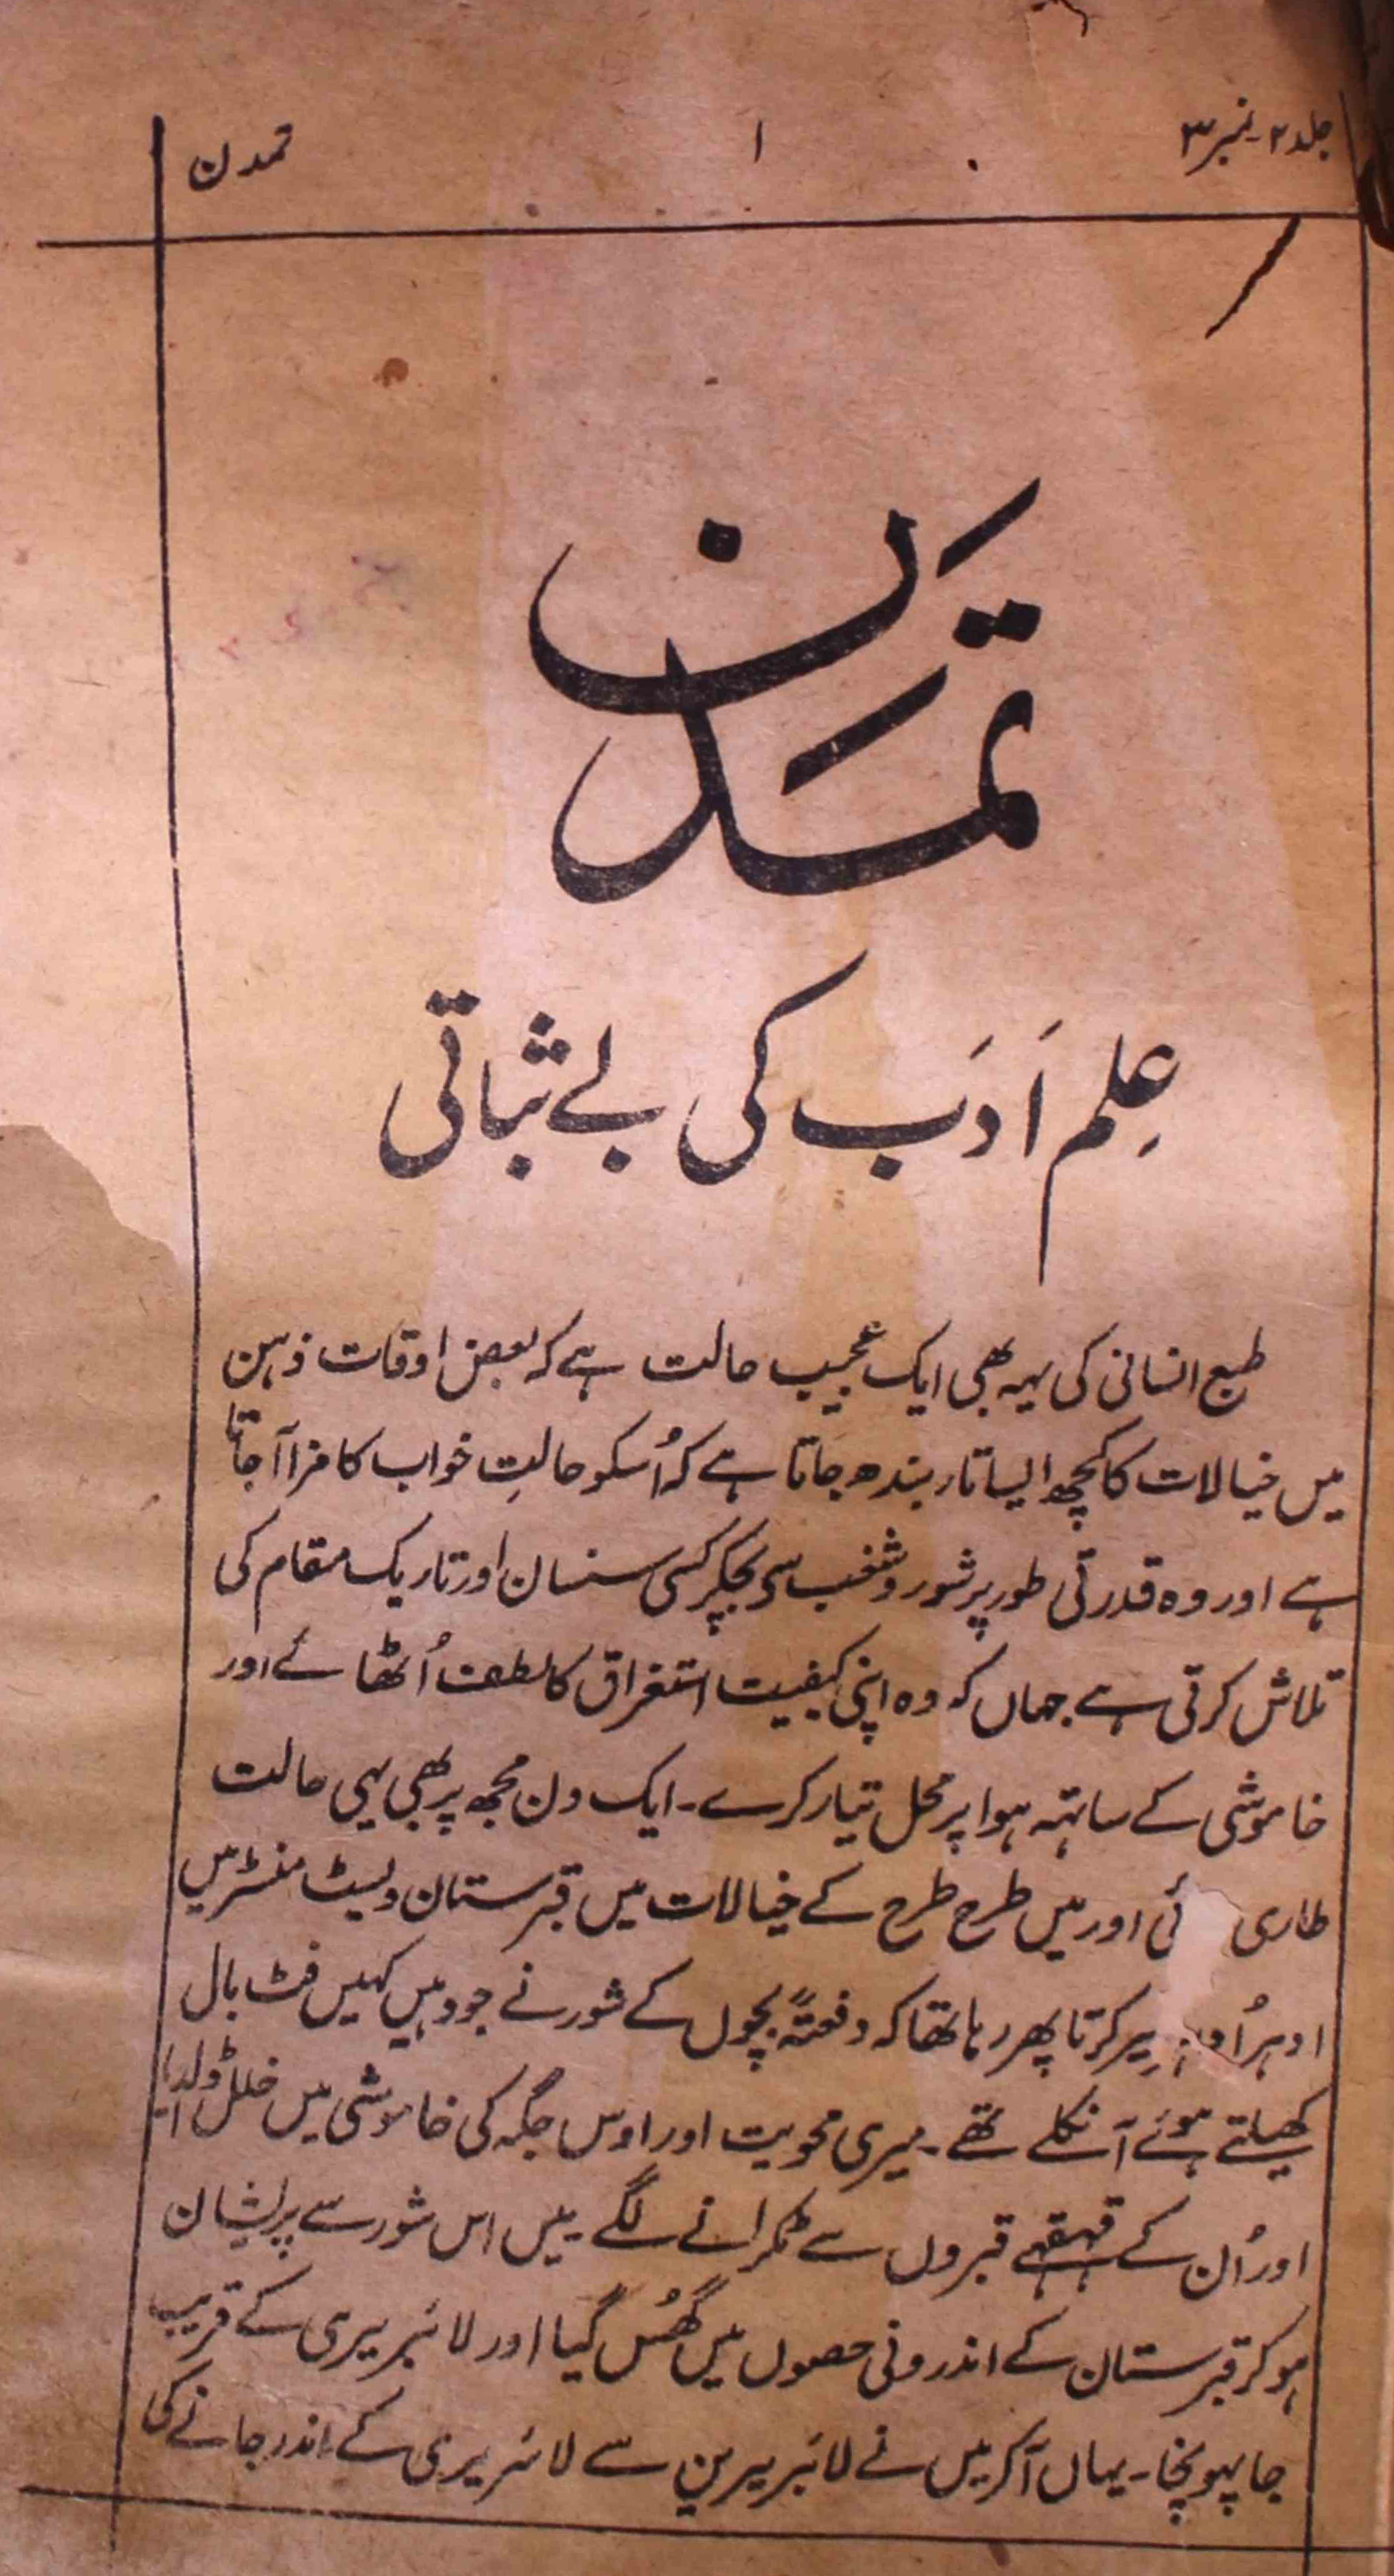 جلد ۲-نمبر ۳
۱
تمدن
تمدَّن
عِلم اَدَب کی بے ثباتی
طبع انسانی کی یہہ بھی ایک عجیب حالت ہے کہ بعض اوقات ذہن
میں خیالات کا کچھ ایسا تار بندھ جاتا ہے کہ اُسکو حالتِ خواب کا مزا آ جاتا
ہے اور وہ قدرتی طور پر شور و شغب سی بچکر کسی سنسان اور تاریک مقام کی
تلاش کرتی ہے جہاں کہ وہ اپنی کیفیت استغراق کا لطف اُٹھائے اور
خاموشی کے ساتہہ ہوا پر محل تیار کرے۔ ایک دن مجھ پر بھی یہی حالت
طاری ئی اور میں طرح طرح کے خیالات میں قبرستان ویسٹ منسٹر میں
ادہر اُد سیر کرتا پھر رہا تھا کہ دفعتہً بچوں کے شور نے جو وہیں کہیں فٹ بال
کھیلتے ہوئے آ نکلے تھے۔ میری محویت اور اوس جگہ کی خاموشی میں خلل ڈالدیا
اور اُن کے قہقہے قبروں سے ٹکرانے لگے۔ میں اس شور سے پریشان
ہو کر قبرستان کے اندرونی حصوں میں گھُس گیا اور لائبریری کے قریب
جا پہونچا۔ یہاں آ کر میں نے لائبریرین سے لائبریری کے اندر جانے کی